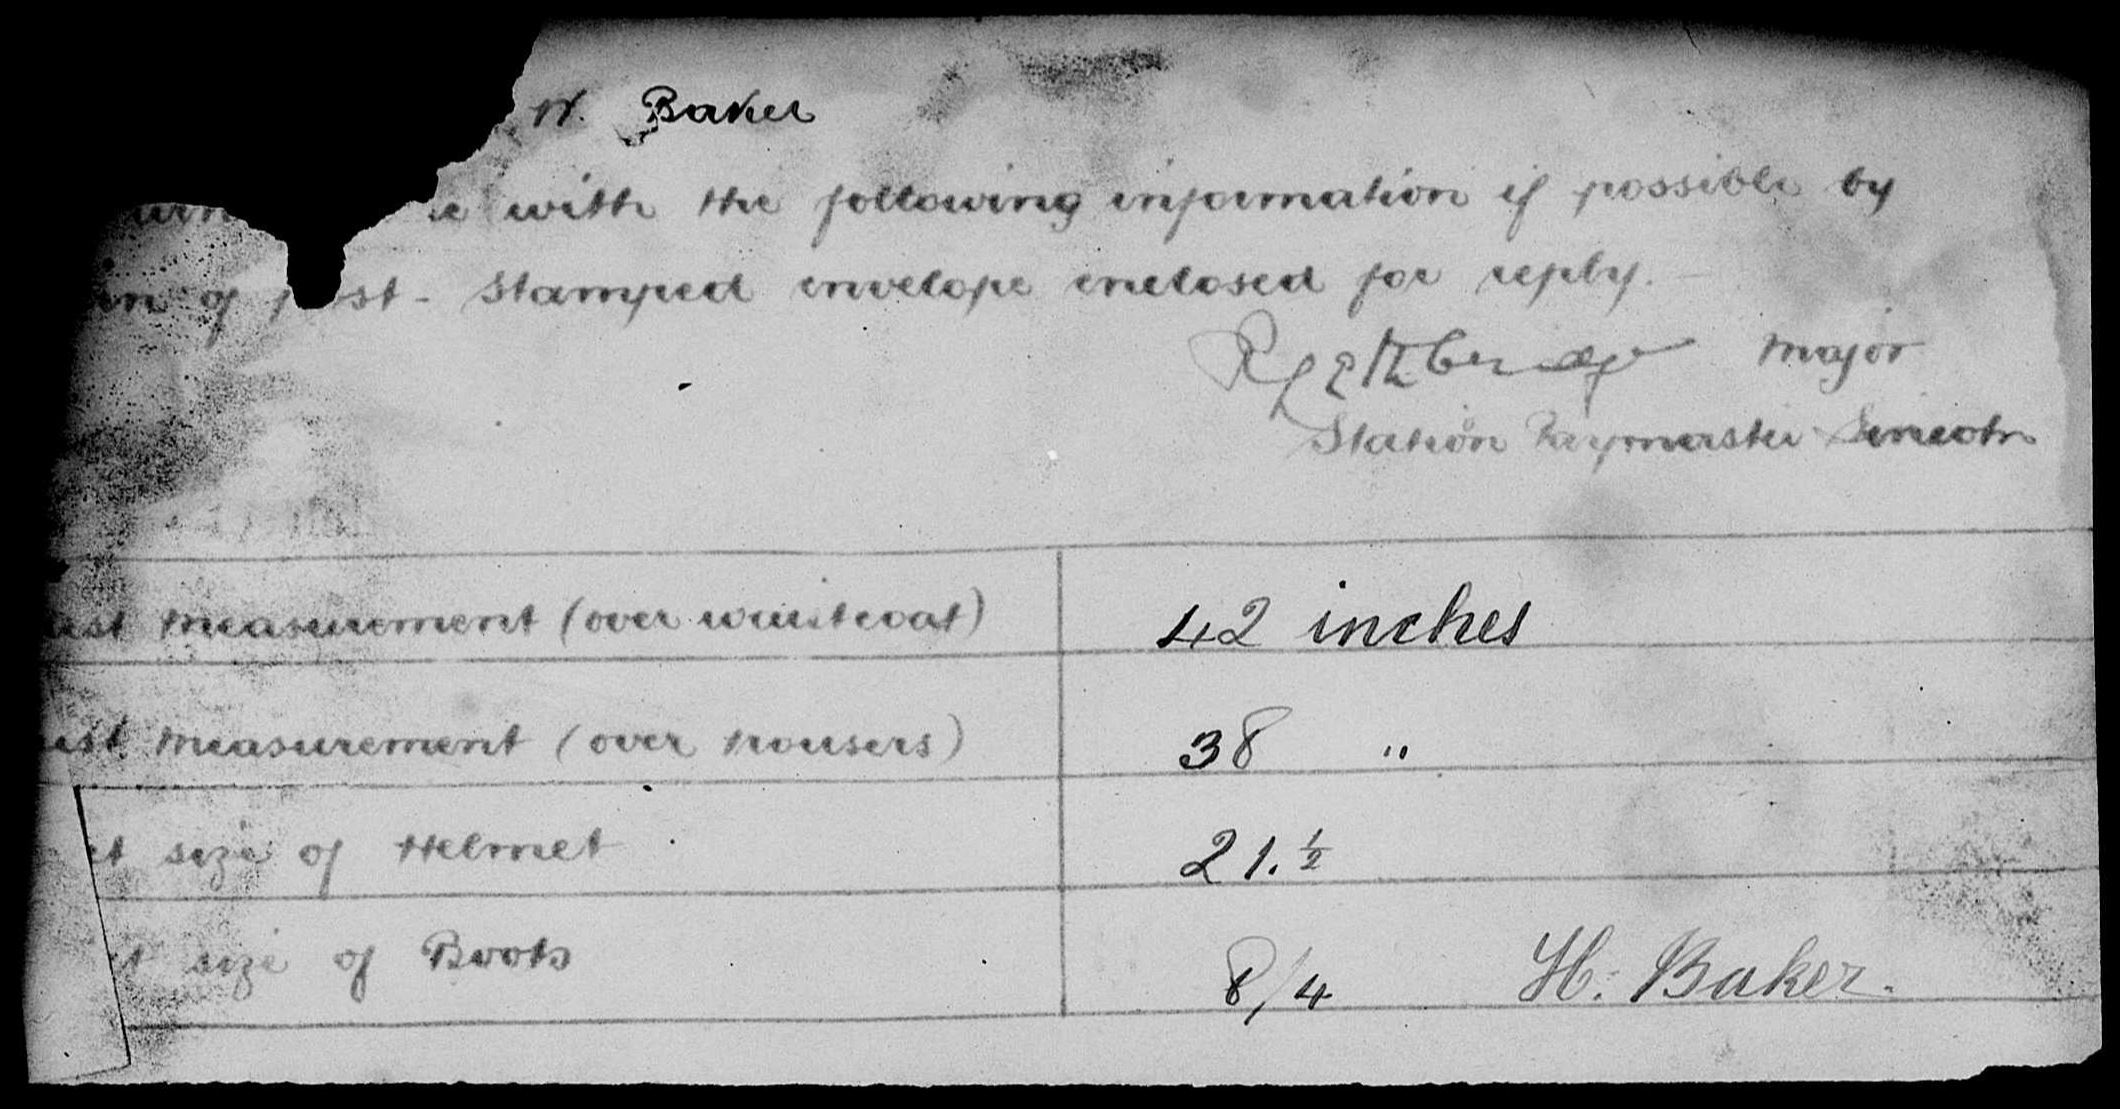 H. Baker
with the following information if possible by
of post - Stamped envelope enclosed for reply. -
Major
Station Paymaster Lincoln
measurement (over waistcoat) 42 inches
measurement (over trousers) 38 "
size of Helmet 21.½
size of Boots 8/4 H. Baker.